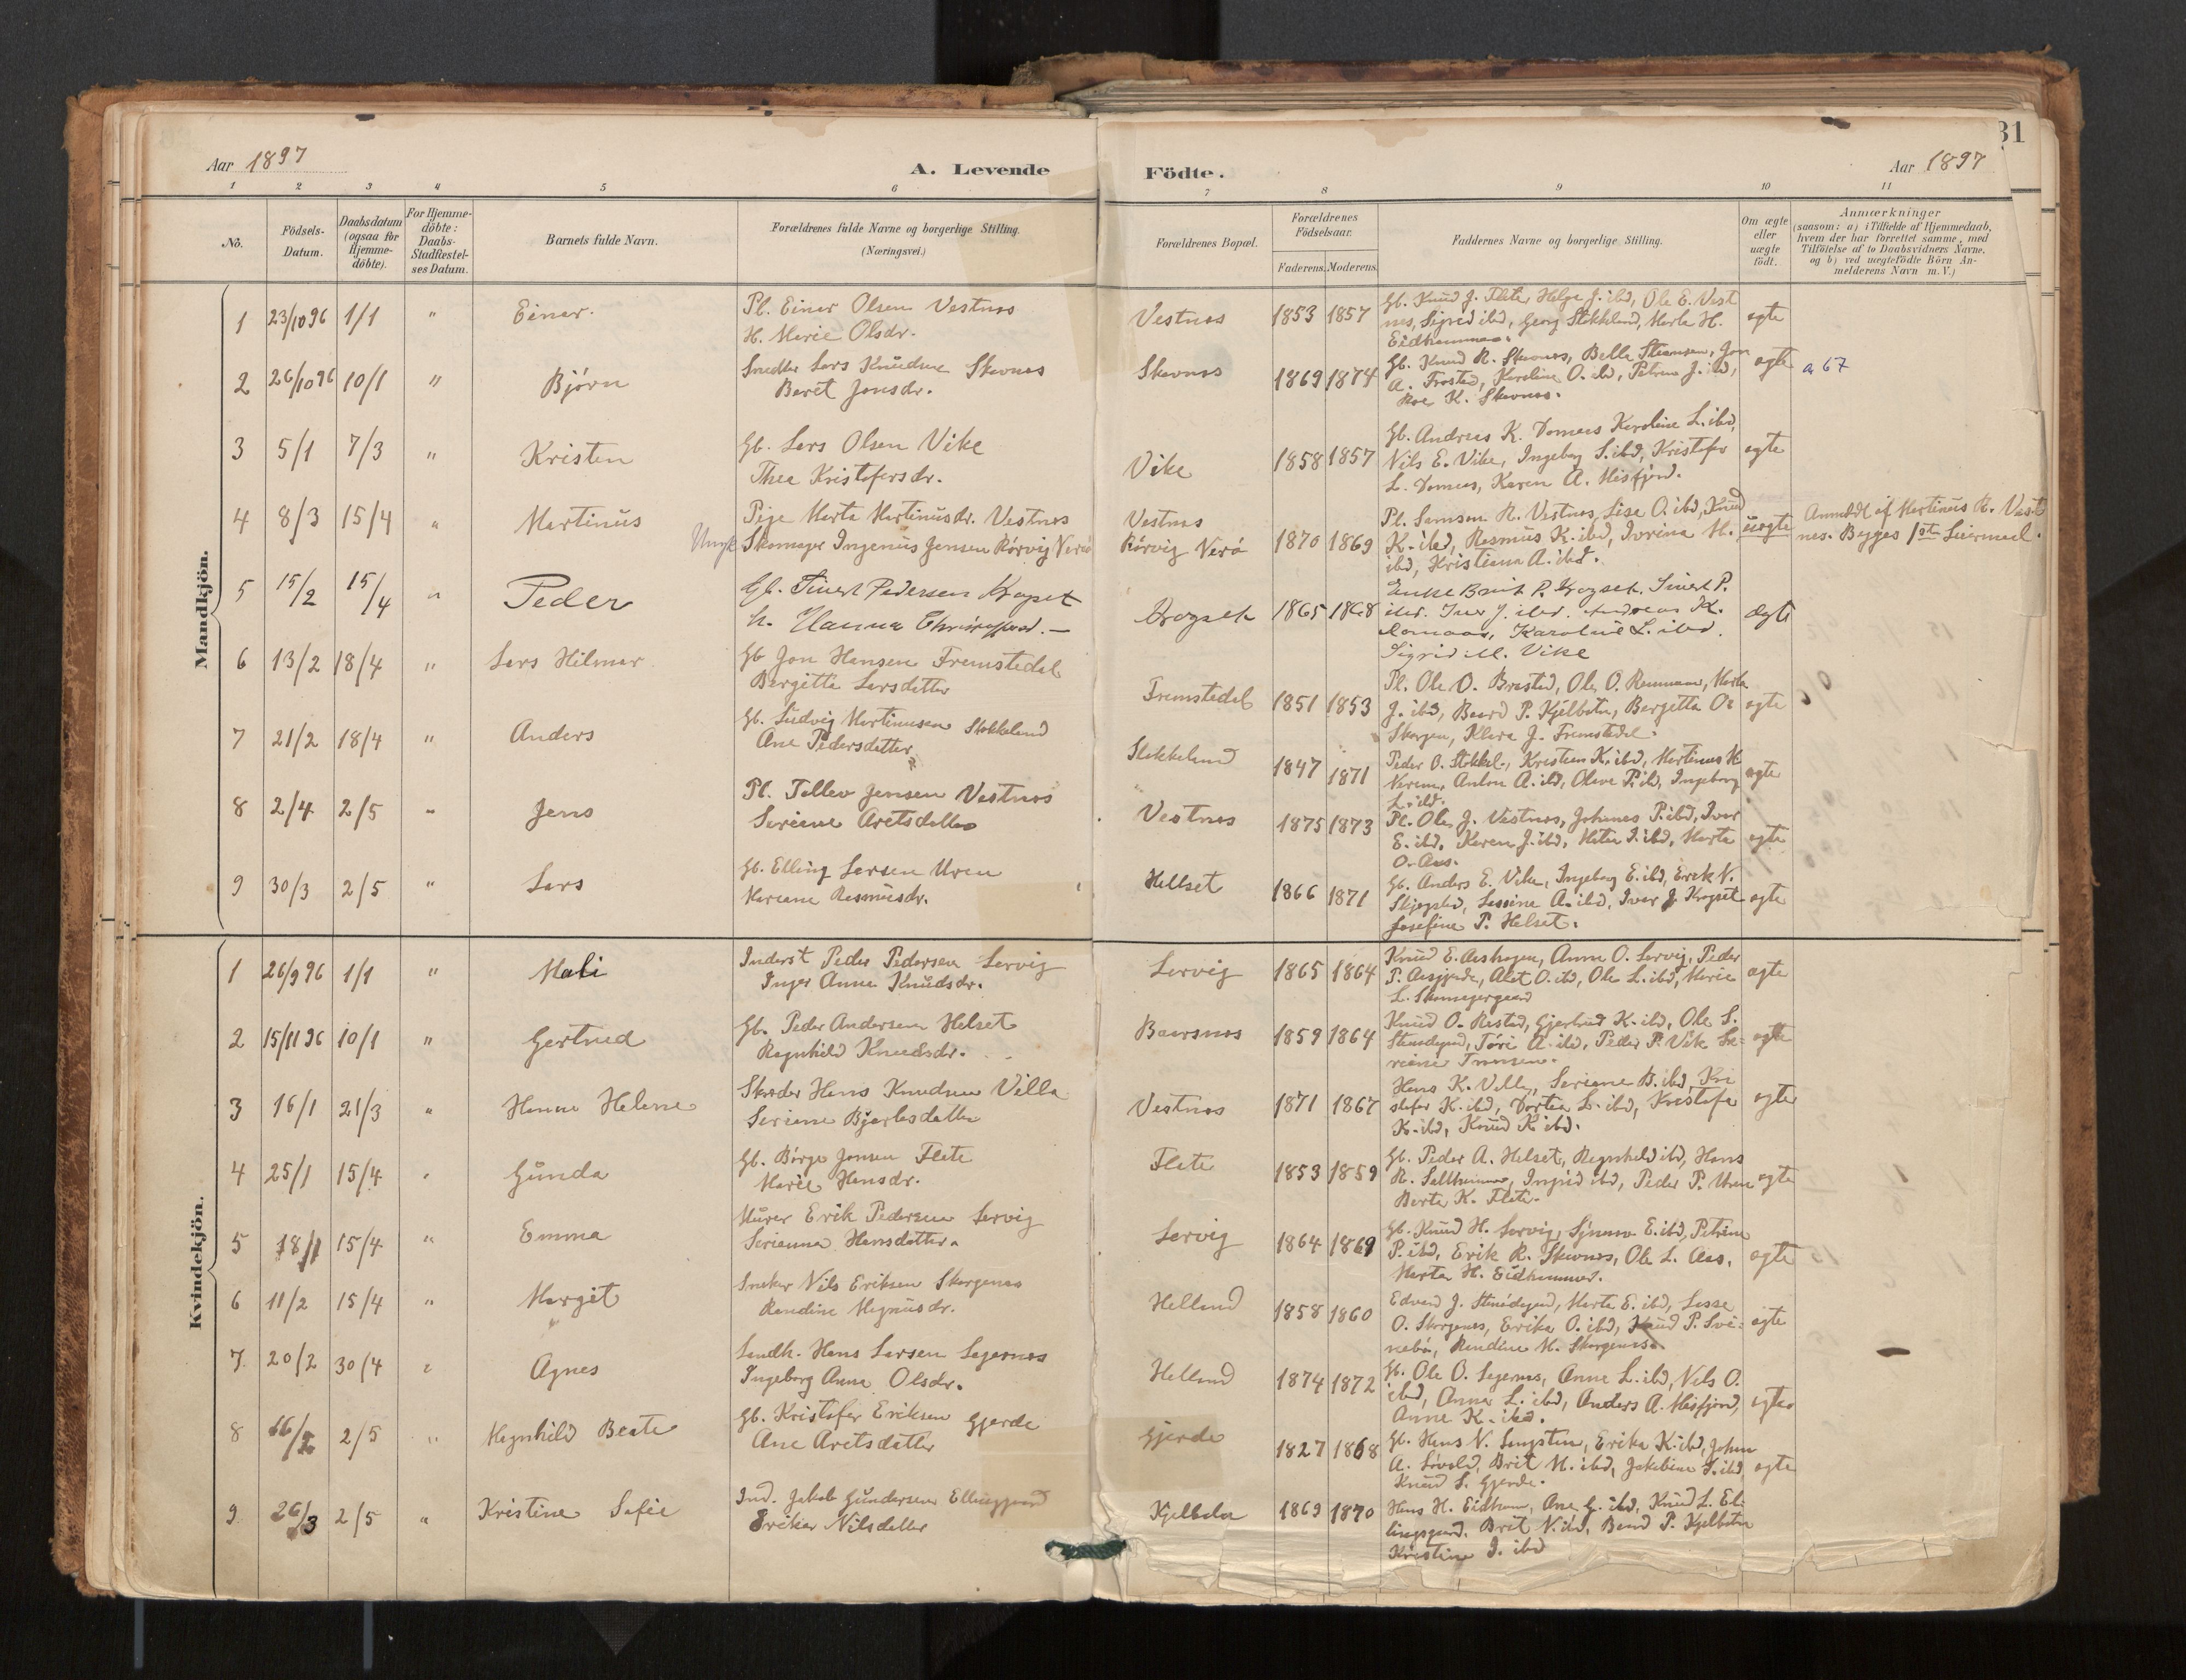 31
Aar 1897
A. Levende Födte.
Aar 1897
1 2 3 4 5 6 7 8 9 10 11
No.
Födsels-Datum.
Daabsdatum (ogsaa for Hjemme-döbte).
For Hjemme-döbte: Daabs-Stadfæstel-ses Datum.
Barnets fulde Navn.
Forældrenes fulde Navne og borgerlige Stilling. (Næringsvei.)
Forældrenes Bopæl.
Forældrenes Födselsaar.
Faderens. Moderens.
Faddernes Navne og borgerlige Stilling.
Om ægte eller uægte födt.
Anmærkninger
(saasom: a) i Tilfælde af Hjemmedaab,
hvem der har forrettet samme, med
Tilföielse af to Daabsvidners Navne,
og b) ved uægtefödte Börn An-
melderens Navn m. V.)
Mandkjön.
1 23/10 96 1/1 " Einar. Pl. Einar Olsen Vestnes
H. Marie Olsdr.
Vestnes 1853 1857 Gb. Knud J. Flate, Helge J. ibd, Ole E. Vest
nes, Sigrid ibd, Georg Stokkeland, Marta H.
Eidhammer. ægte
2 26/10 96 10/1 " Björn Smedlr Lars Knudsen Skavnes
Beret Jonsdr.
Skavnes 1869 1874 Gb. Knud R. Skavnes, Jon
A. Frostad, Karoline O. ibd, Petrine J. ibd,
K. Skavnes. ægte a 67
3 5/1 7/3 " Kristen Gb. Lars Olsen Vike
Thea Kristofersdr.
Vike 1858 1857 Gb. Andreas K. Domaas Karoline L. ibd,
Nils E. Vike, Ingeborg S. ibd, Kristofer
L. Domaas, Karen A. Misfjord. ægte
4 8/3 15/4 " Martinus Pige Marta Martinusdr. Vestnes
Ungk. Skomager Ingenius Jensen Rörvig Verö
Vestnes
Rörvig Verö 1870 1869 Pl. Samson R. Vestnes, Lise O. ibd, Knud
K. ibd, Rasmus K. ibd, Ivrina M.
ibd, Kristiana A. ibd. uægte
Anmeldt af Martinus K. Vest
nes. Begges 1ste Leiermaal.
5 15/2 15/4 " Peder Gb. Sivert Pedersen Kragset
h.
Kragset 1865 1868 Enke Brit P. Kragset, Sivert P.
ibd. Iver J. ibd. Andreas K.
Domaas, Karoline L. ibd.
Sigrid M. Vike ægte
6 13/2 18/4 " Lars Hilmar Gb Jon Hansen Fremstedal
Bergitte Larsdatter
Fremstedal 1851 1853 Pl. Ole O. Brastad, Ole O. Remmem, Marta
J. ibd, Baard P. Kjelbotn, Bergitta O.
Skorgen, Klara J. Fremstedal. ægte
7 21/2 18/4 " Anders Gb. Ludvig Martinusen Stokkeland
Ane Pedersdatter
Stokkeland 1847 1871 Peder O. Stokkel., Kristian K. ibd, Martinus K
Anton A. ibd, Olave P. ibd, Ingeborg
L. ibd. ægte
8 2/4 2/5 " Jens Pl. Tellev Jensen Vestnes
Seriane Aretsdatter
Vestnes 1875 1873 Pl. Ole J. Vestnes, Johannes P. ibd, Iver
E. ibd, Karen J. ibd, Marta
O. Aas. ægte
9 30/3 2/5 " Lars Gb. Elling Larsen Uren
Mariane Rasmusdr.
Hellset 1866 1871 Gb. Anders E. Vike, Ingeborg E. ibd, Erik N.
Skjegstad, A. ibd, Iver J. Kragset
Josefine P. Helset. ægte
Kvindekjön.
1 26/9 96 1/1 " Mali Inderst Peder Pedersen Lervig
Inger Anna Knudsdr.
Lervig 1865 1864 Knud E. Aashagen, Anne O. Lervig, Peder
P. Aasgjerde, Alet O. ibd, Ole L. ibd, Marie
L. Skomagergaard ægte
2 15/11 96 10/1 " Gertrud Gb. Peder Andersen Helset
Ragnhild Knudsdr.
Baarsnes 1859 1864 Knud O. Rested, Gjertrud K. ibd, Ole S.
Töri A. ibd, Peder P. Vik Se-
riane ægte
3 16/1 21/3 " Hanna Helene Skræder Hans Knudsen Villa
Seriane Bjartesdatter
Vestnes 1871 1867 Hans K. Villa, Seriane B. ibd, Kri
stofer K. ibd, Dortea L. ibd, Kristofer
K. ibd, Knud K ibd. ægte
4 25/1 15/4 " Gunda Gb. Börge Jonsen Flate
Marit Hansdr.
Flate 1853 1859 Gb. Peder A. Helset, Ragnhild ibd, Hans
R. Saltkammer, Ingrid ibd, Peder P. Uren
Berte K. Flate. ægte
5 18/1 15/4 " Emma Murer Erik Pedersen Lervig
Serianna Hansdatter.
Lervig 1864 1869 Gb. Knud H. Lervig, E. ibd, Petrine
P. ibd, Erik R. Skavnes, Ole L. Aas,
Marta H. Eidhammer. ægte
6 11/2 15/4 " Margit Snekr Nils Eriksen Skorgenes
Randine Magnusdr.
Helland 1858 1860 Edvard J. Marta E. ibd, Lasse
O. Skorgenes, Erika O. ibd, Knud P. Svi-
nebö, Randine M. Skorgenes. ægte
7 20/2 30/4 " Agnes Landh. Hans Larsen Sagernes
Ingeborg Anna Olsdr.
Helland 1874 1872 Gb. Ole O. Sagernes, Anne L. ibd, Nils O.
ibd, Anna L. ibd, Anders A. Misfjord,
Anne K. ibd. ægte
8 16/2 2/5 " Magnhild Beate Gb. Kristofer Eriksen Gjerde
Ane Aretsdatter
Gjerde 1827 1868 Gb. Hans N. Erika K. ibd, Johan
A. Brit M. ibd, Jakobine S. ibd
Knud S. Gjerde. ægte
9 26/3 2/5 " Kristine Sofie Ind. Jakob Gundersen Ellingsgaard
Erika Nilsdatter
Kjelbotn 1869 1870 Hans H. Eidham, Ane G. ibd, Knud L. El-
lingsgaard, Brit N. ibd, P. Kjelbotn
Kristine J. ibd